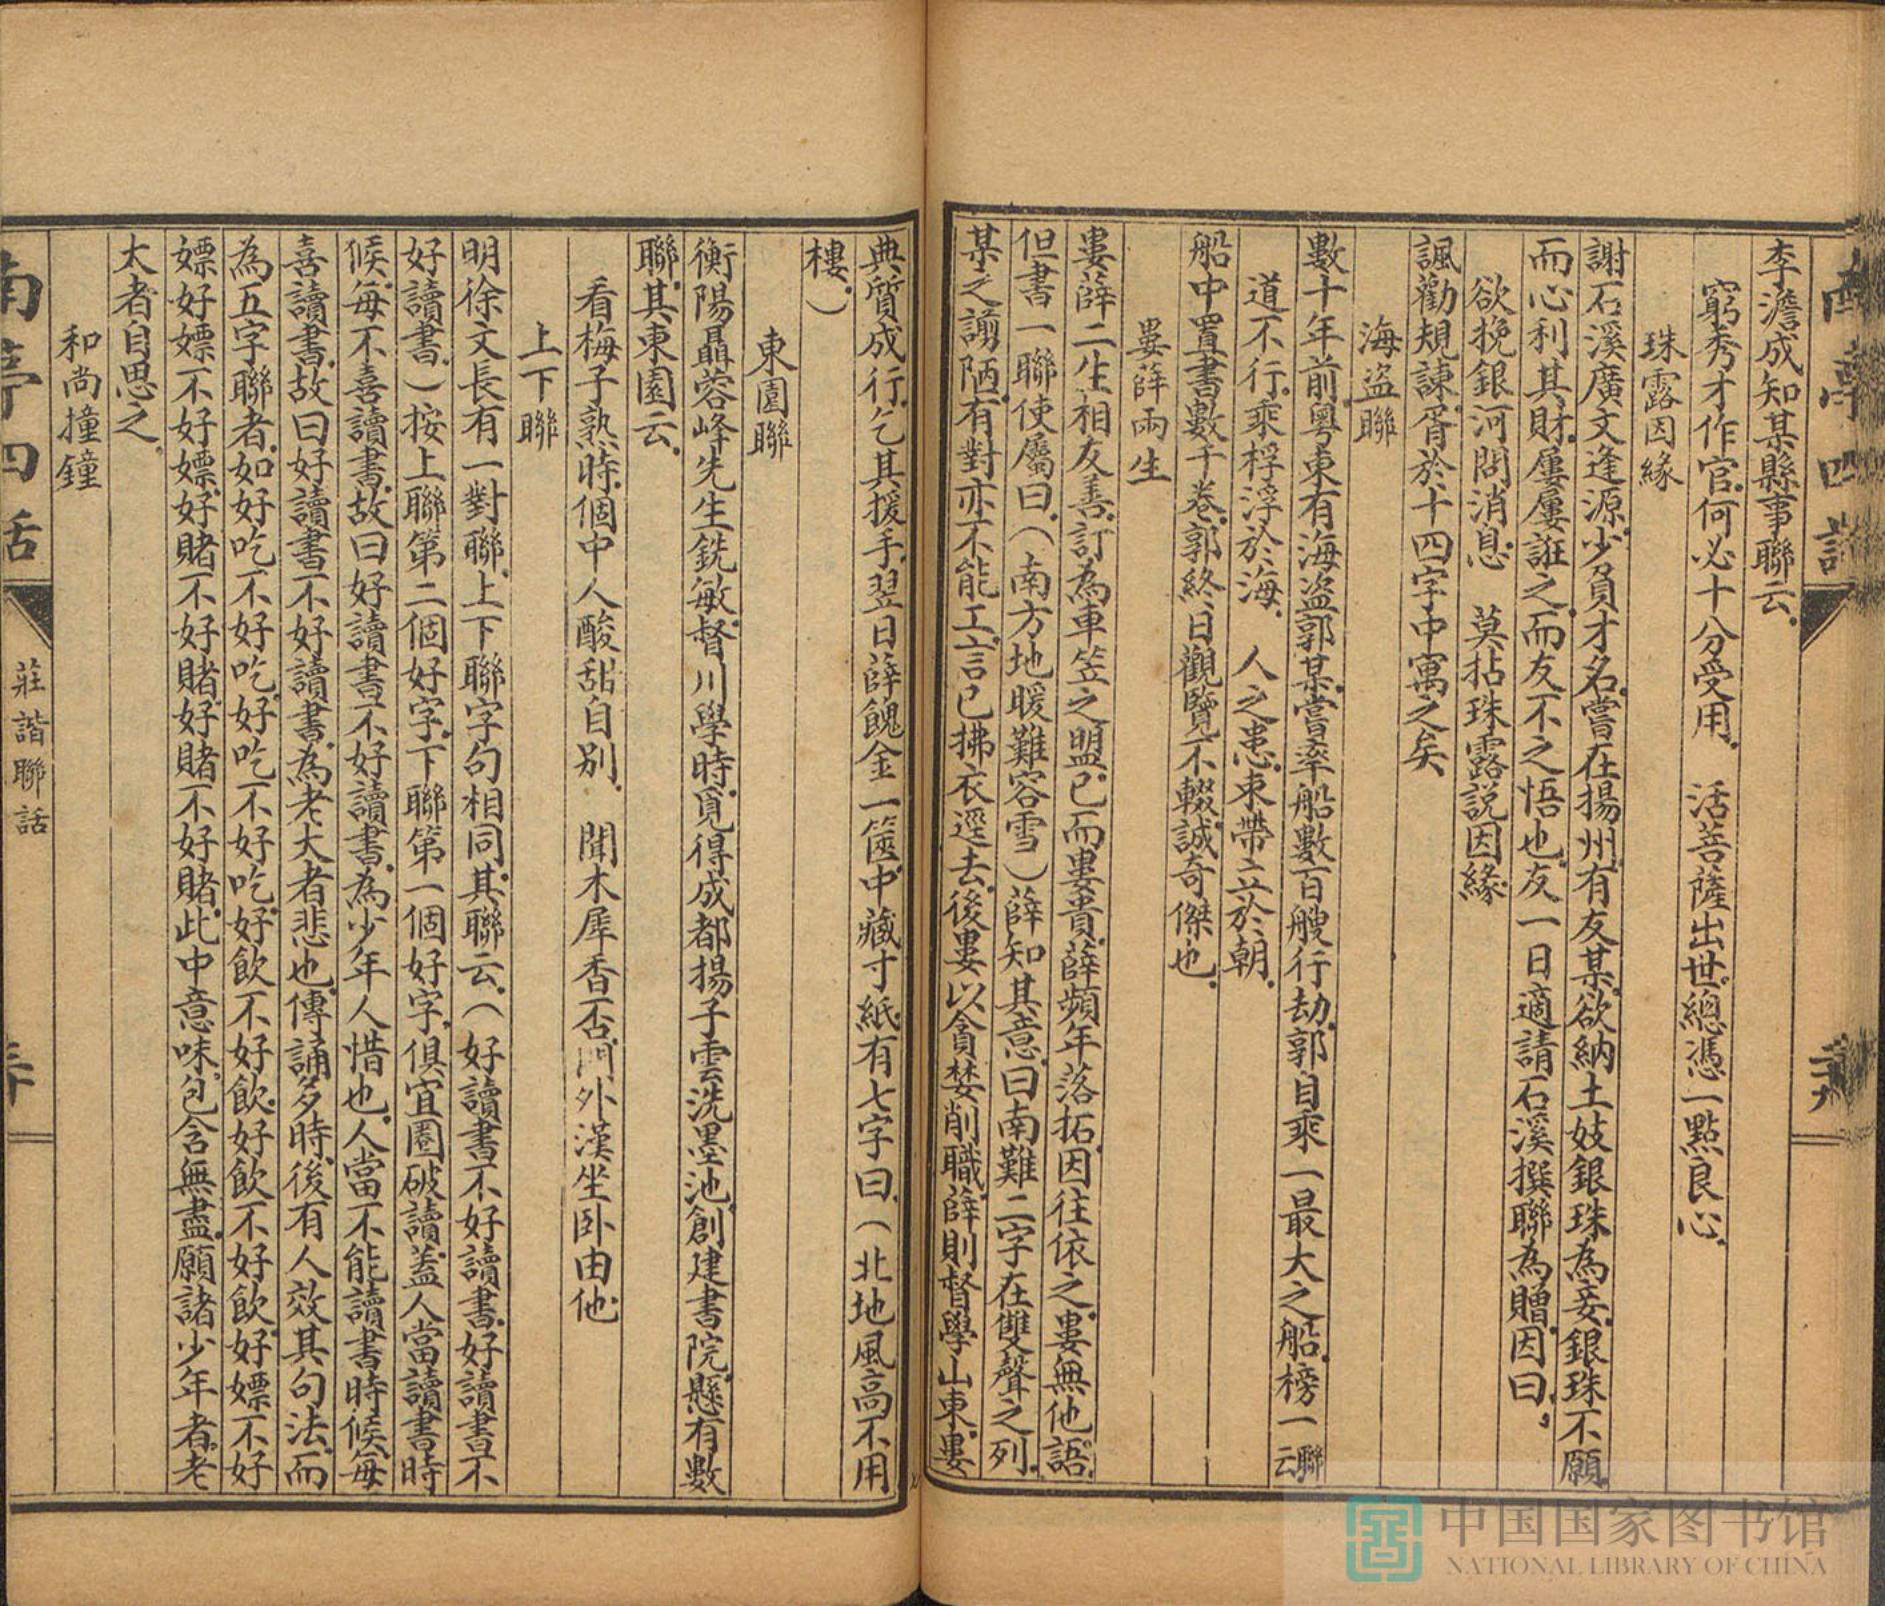 南亭四話
二十九
李澹成知某縣事聯云.
窮秀才作官.何必十分受用.　活菩薩出世.總憑一點良心.
珠露因緣
謝石溪廣文逢源.少負才名.嘗在揚州.有友某.欲納土妓銀珠為妾.銀珠不願.
而心利其財.屢屢誑之.而友不之悟也.友一日適請石溪撰聯為贈.因曰.
欲挽銀河問消息　莫拈珠露説因緣.
諷勸規諫.胥於十四字中寓之矣.
海盜聯
數十年前.粵東有海盜郭某.嘗率船數百艘行劫.郭自乘一最大之船.榜一聯云
道不行.乘桴浮於海.　人之患.束帶立於朝.
船中置書數千卷.郭終日觀覽不輟.誠奇傑也.
婁薛兩生
婁薛二生.相友善.訂為車笠之盟.已而婁貴.薛頻年落拓.因往依之.婁無他語.
但書一聯使屬曰.（南方地暖難容雪）薛知其意.曰南難二字.在雙聲之列.
某之謭陋.有對亦不能工.言已.拂衣逕去.後婁以貪婪削職.薛則督學山東.婁
典質成行.乞其援手.翌日薛餽金一篋.中藏寸紙.有七字曰.（北地風高不用
樓.）
東園聯
衡陽聶蓉峰先生銑敏.督川學時.覓得成都揚子雲洗墨池.創建書院.懸有數
聯.其東園云.
看梅子熟時.個中人酸甜自別.　聞木犀香否.門外漢坐卧由他.
上下聯
明徐文長有一對聯.上下聯字句相同.其聯云.（好讀書不好讀書.好讀書不
好讀書.）按上聯第二個好字.下聯第一個好字.俱宜圈破讀.蓋人當讀書時
候.每不喜讀書.故曰好讀書不好讀書.為少年人惜也.人當不能讀書時候.每
喜讀書.故曰好讀書不好讀書.為老大者悲也.傳誦多時.後有人效其句法.而
為五字聯者.如好吃不好吃.好吃不好吃.好飲不好飲.好飲不好飲.好嫖不好
嫖.好嫖不好嫖.好賭不好賭.好賭不好賭.此中意味.包含無盡.願諸少年者.老
大者自思之.
和尚撞鐘
南亭四話
莊諧聯話
三十
中国国家图书馆
NATIONAL LIBRARY OF CHINA